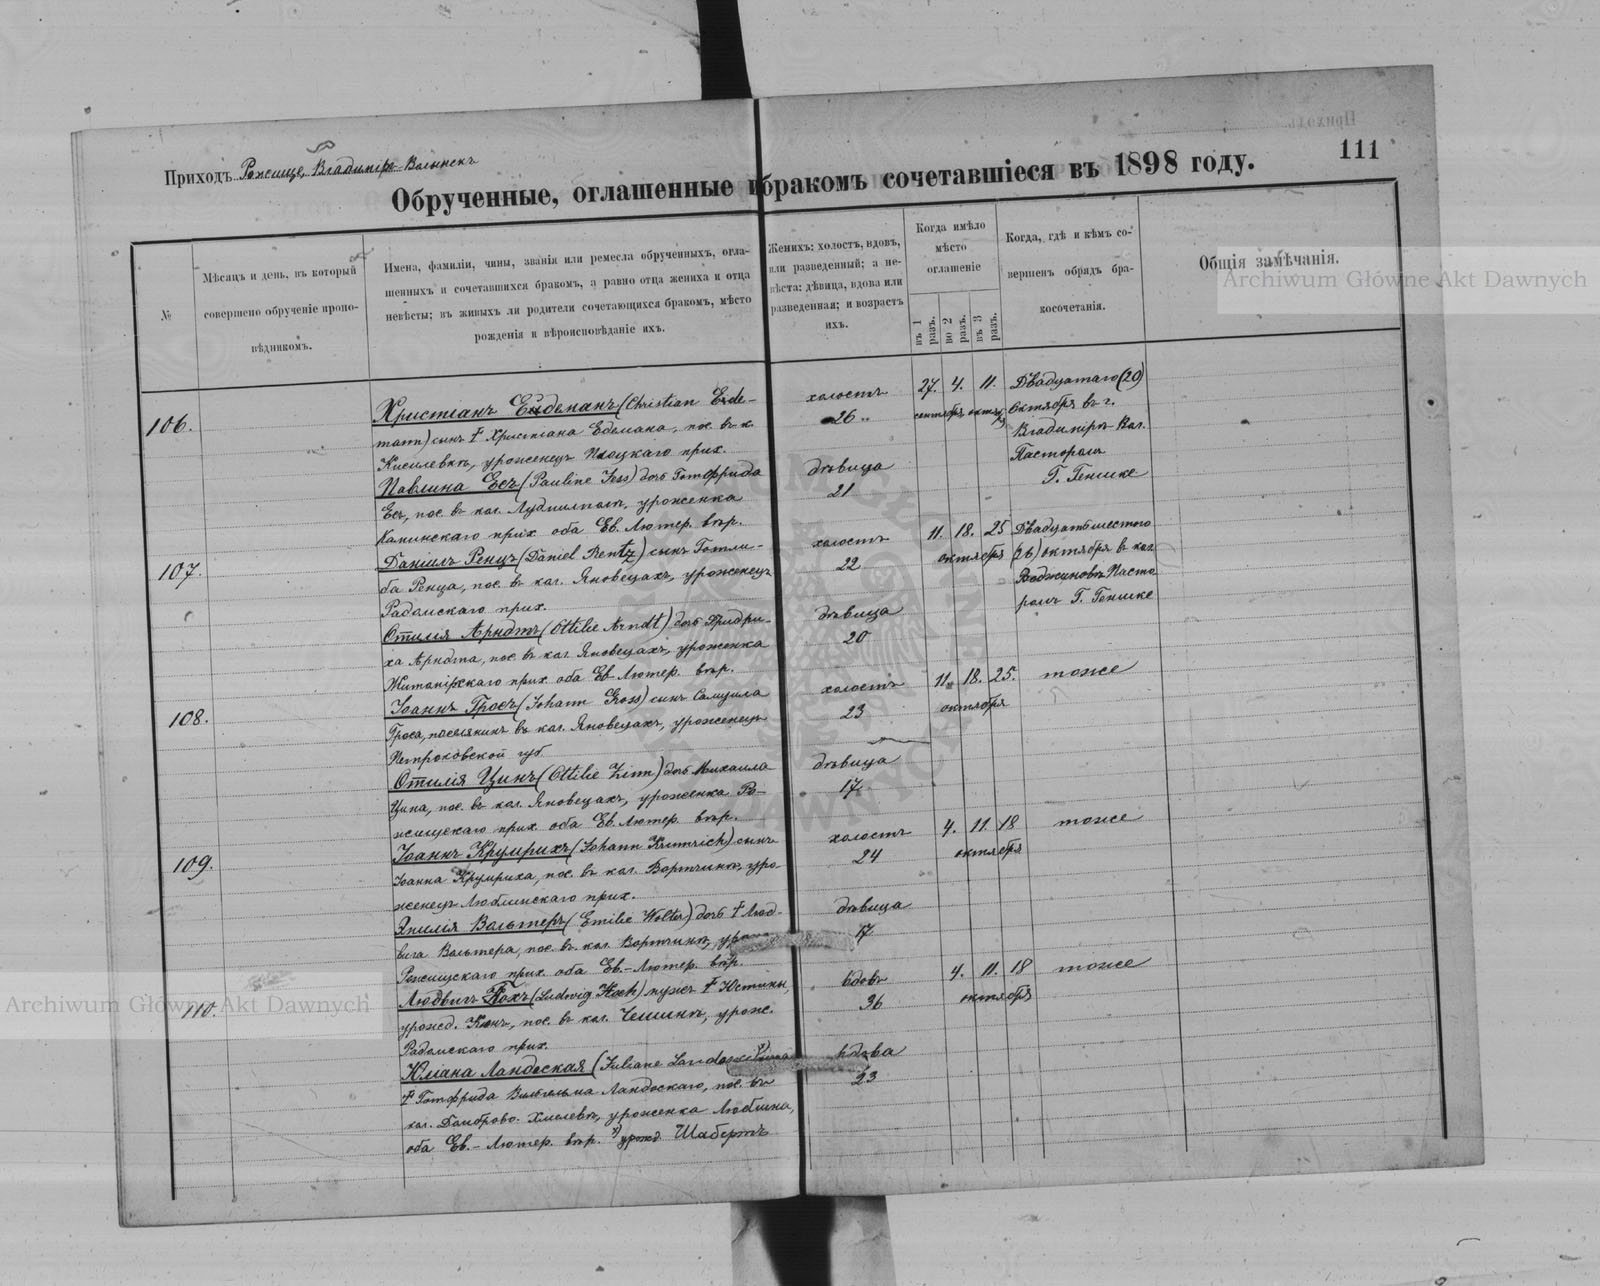 Приходъ Рожище, Владиміръ-Волынскъ
Обрученные, оглашенные и бракомъ сочетавшіеся въ 1898 году.
111
№
Мѣсяцъ и день, въ который
совершено обрученіе пропо-
вѣдникомъ.
Имена, фамиліи, чины, званія или ремесла обрученныхъ, огла-
шенныхъ и сочетавшихся бракомъ, а равно отца жениха и отца
невѣсты; въ живыхъ ли родители сочетающихся бракомъ, мѣсто
рожденія и вѣроисповѣданіе ихъ.
Женихъ: холостъ, вдовъ,
или разведенный; а не-
вѣста: дѣвица, вдова или
разведенная; и возрастъ
ихъ.
Когда имѣло
мѣсто
оглашеніе
въ 1 разъ.
во 2 разъ.
въ 3 разъ.
Когда, гдѣ и кѣмъ со-
вершенъ обрядъ бра-
косочетанія.
Общія замѣчанія.
106.
Христіанъ Едеманъ (Christian Ede-
mann) сынъ † Христіана Едемана, пос. въ к.
Киселевкѣ, уроженецъ Плоцкаго прих.
Павлина Есъ (Pauline Jess) дочь Готфрида
Есъ, пос. въ кол. Лудмилполь, уроженка
прих оба Ев. Лютер. вѣр.
холостъ
26
дѣвица
21
27. 4. 11.
сентября октяб.
Двадцатаго (20)
Октября въ г.
Владимірѣ Вол.
Пасторомъ
Г. Генике
107.
Даніилъ Ренцъ (Daniel Rentz) сынъ Готли-
ба Ренца, пос. въ кол. Яновецахъ, уроженецъ
Радомскаго прих.
Отилія Арндтъ (Ottilie Arndt) дочь Фридри-
ха Арндта, пос. въ кол Яновецахъ, уроженка
Житомірскаго прих. оба Ев Лютер. вѣр.
холостъ
22
дѣвица
20
11. 18. 25
октября
Двадцать шестого
(26) октября въ кол
Пасто
ромъ Г. Генике
108.
Іоаннъ Гросъ (Johann Gross) сынъ Самуила
Гроса, поселянинъ въ кол. Яновецахъ, уроженецъ
Петроковской губ.
Отилія Цинъ (Ottilie Zinn) дочь Михаила
Цина, пос. въ кол. Яновецахъ, уроженка Ро-
жищскаго прих. оба Ев. Лютер. вѣр.
холостъ
23
дѣвица
17.
11. 18. 25.
октября
тоже
109.
Іоаннъ Крумрихъ (Johann Krumrich) сынъ
Іоанна Крумриха, пос. въ кол. Вортчинъ, уро-
женецъ Люблинскаго прих.
Эмилія Вольтеръ (Emilie Wolter) дочь † Люд-
вига Вольтера, пос. въ кол. Вортчинъ,
Рожищскаго прих. оба Ев.-Лютер. вѣр.
холостъ
24
дѣвица
17
4. 11. 18
октября
тоже
110.
Людвигъ Кохъ (Ludwig Koch) мужъ † Юстины,
урожд. пос. въ кол. урож.
Радомскаго прих.
Юліана Ландоская (Juliane
† Готфрида Вильгельма Ландоскаго, пос. въ
кол. Домброво-Хмелевѣ, уроженка Люблина,
оба Ев.-Лютер. вѣр. *) урожд. Шабертъ
вдовъ
36
вдова
23
4. 11. 18
октября
тоже
Archiwum Główne Akt Dawnych
Archiwum Główne Akt Dawnych